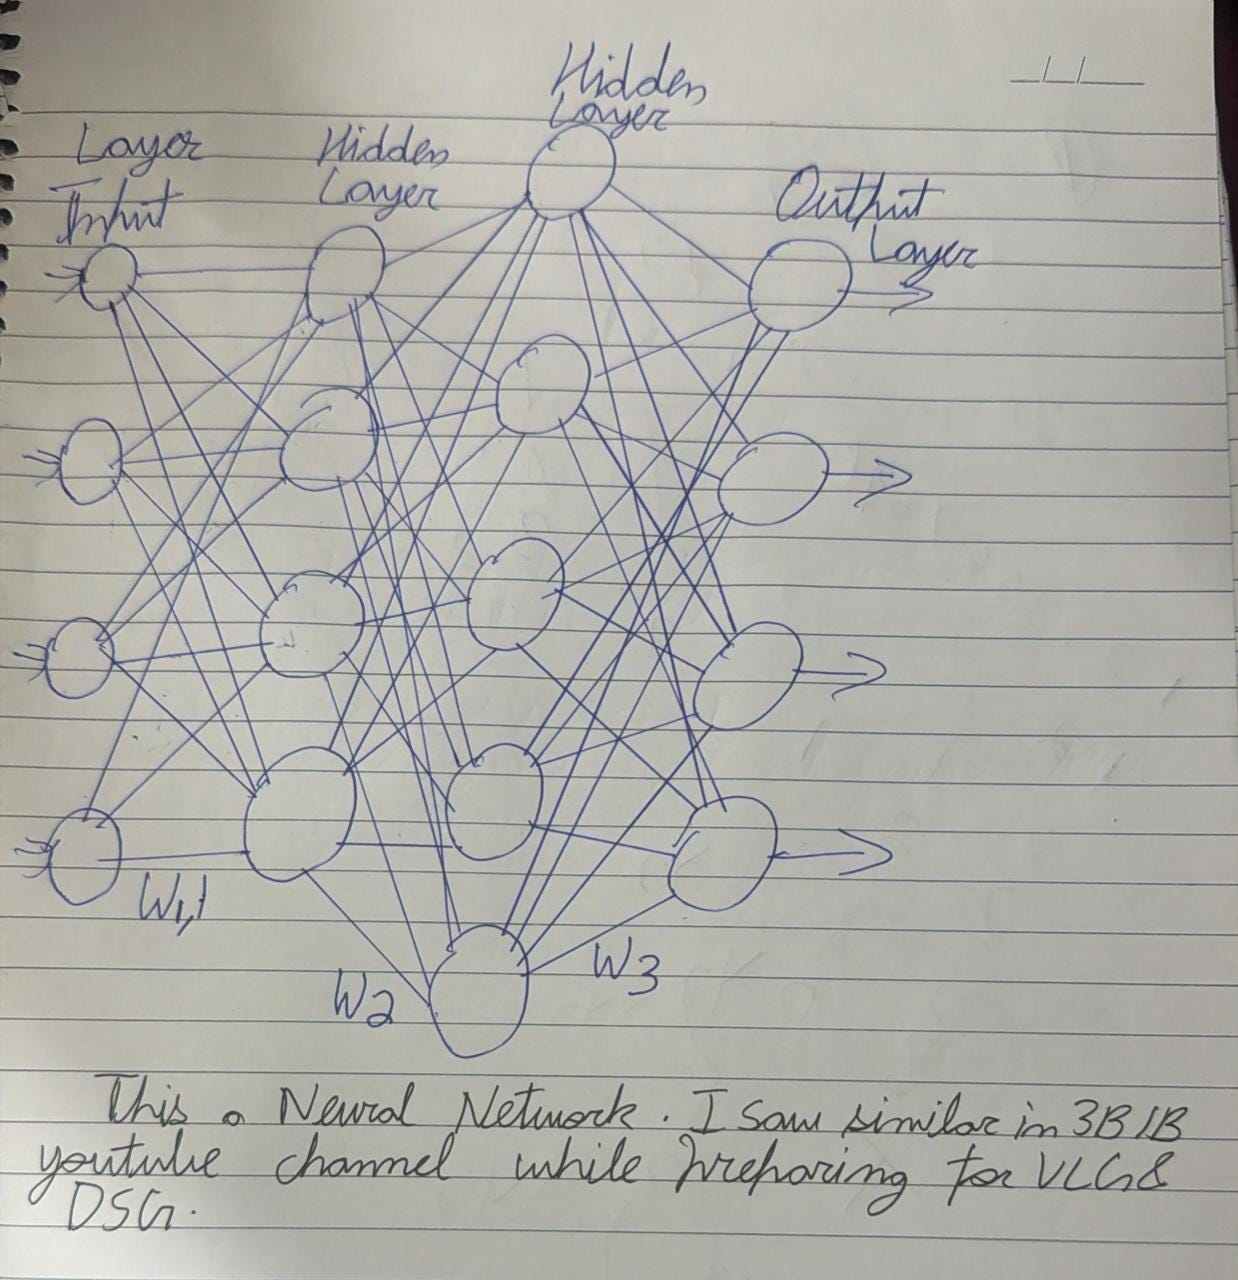 Hidden
Layer
Layer
Input
Hidden
Layer
Output
Layer
W1,1
W2
W3
This a Neural Network. I saw similar in 3B1B
youtube channel while preparing for VLG &
DSG.